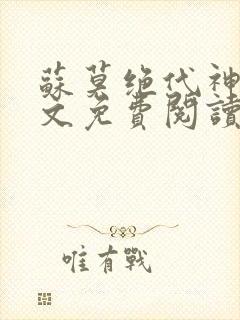 蘇莫绝代神
文免費閱讀
唯有戰